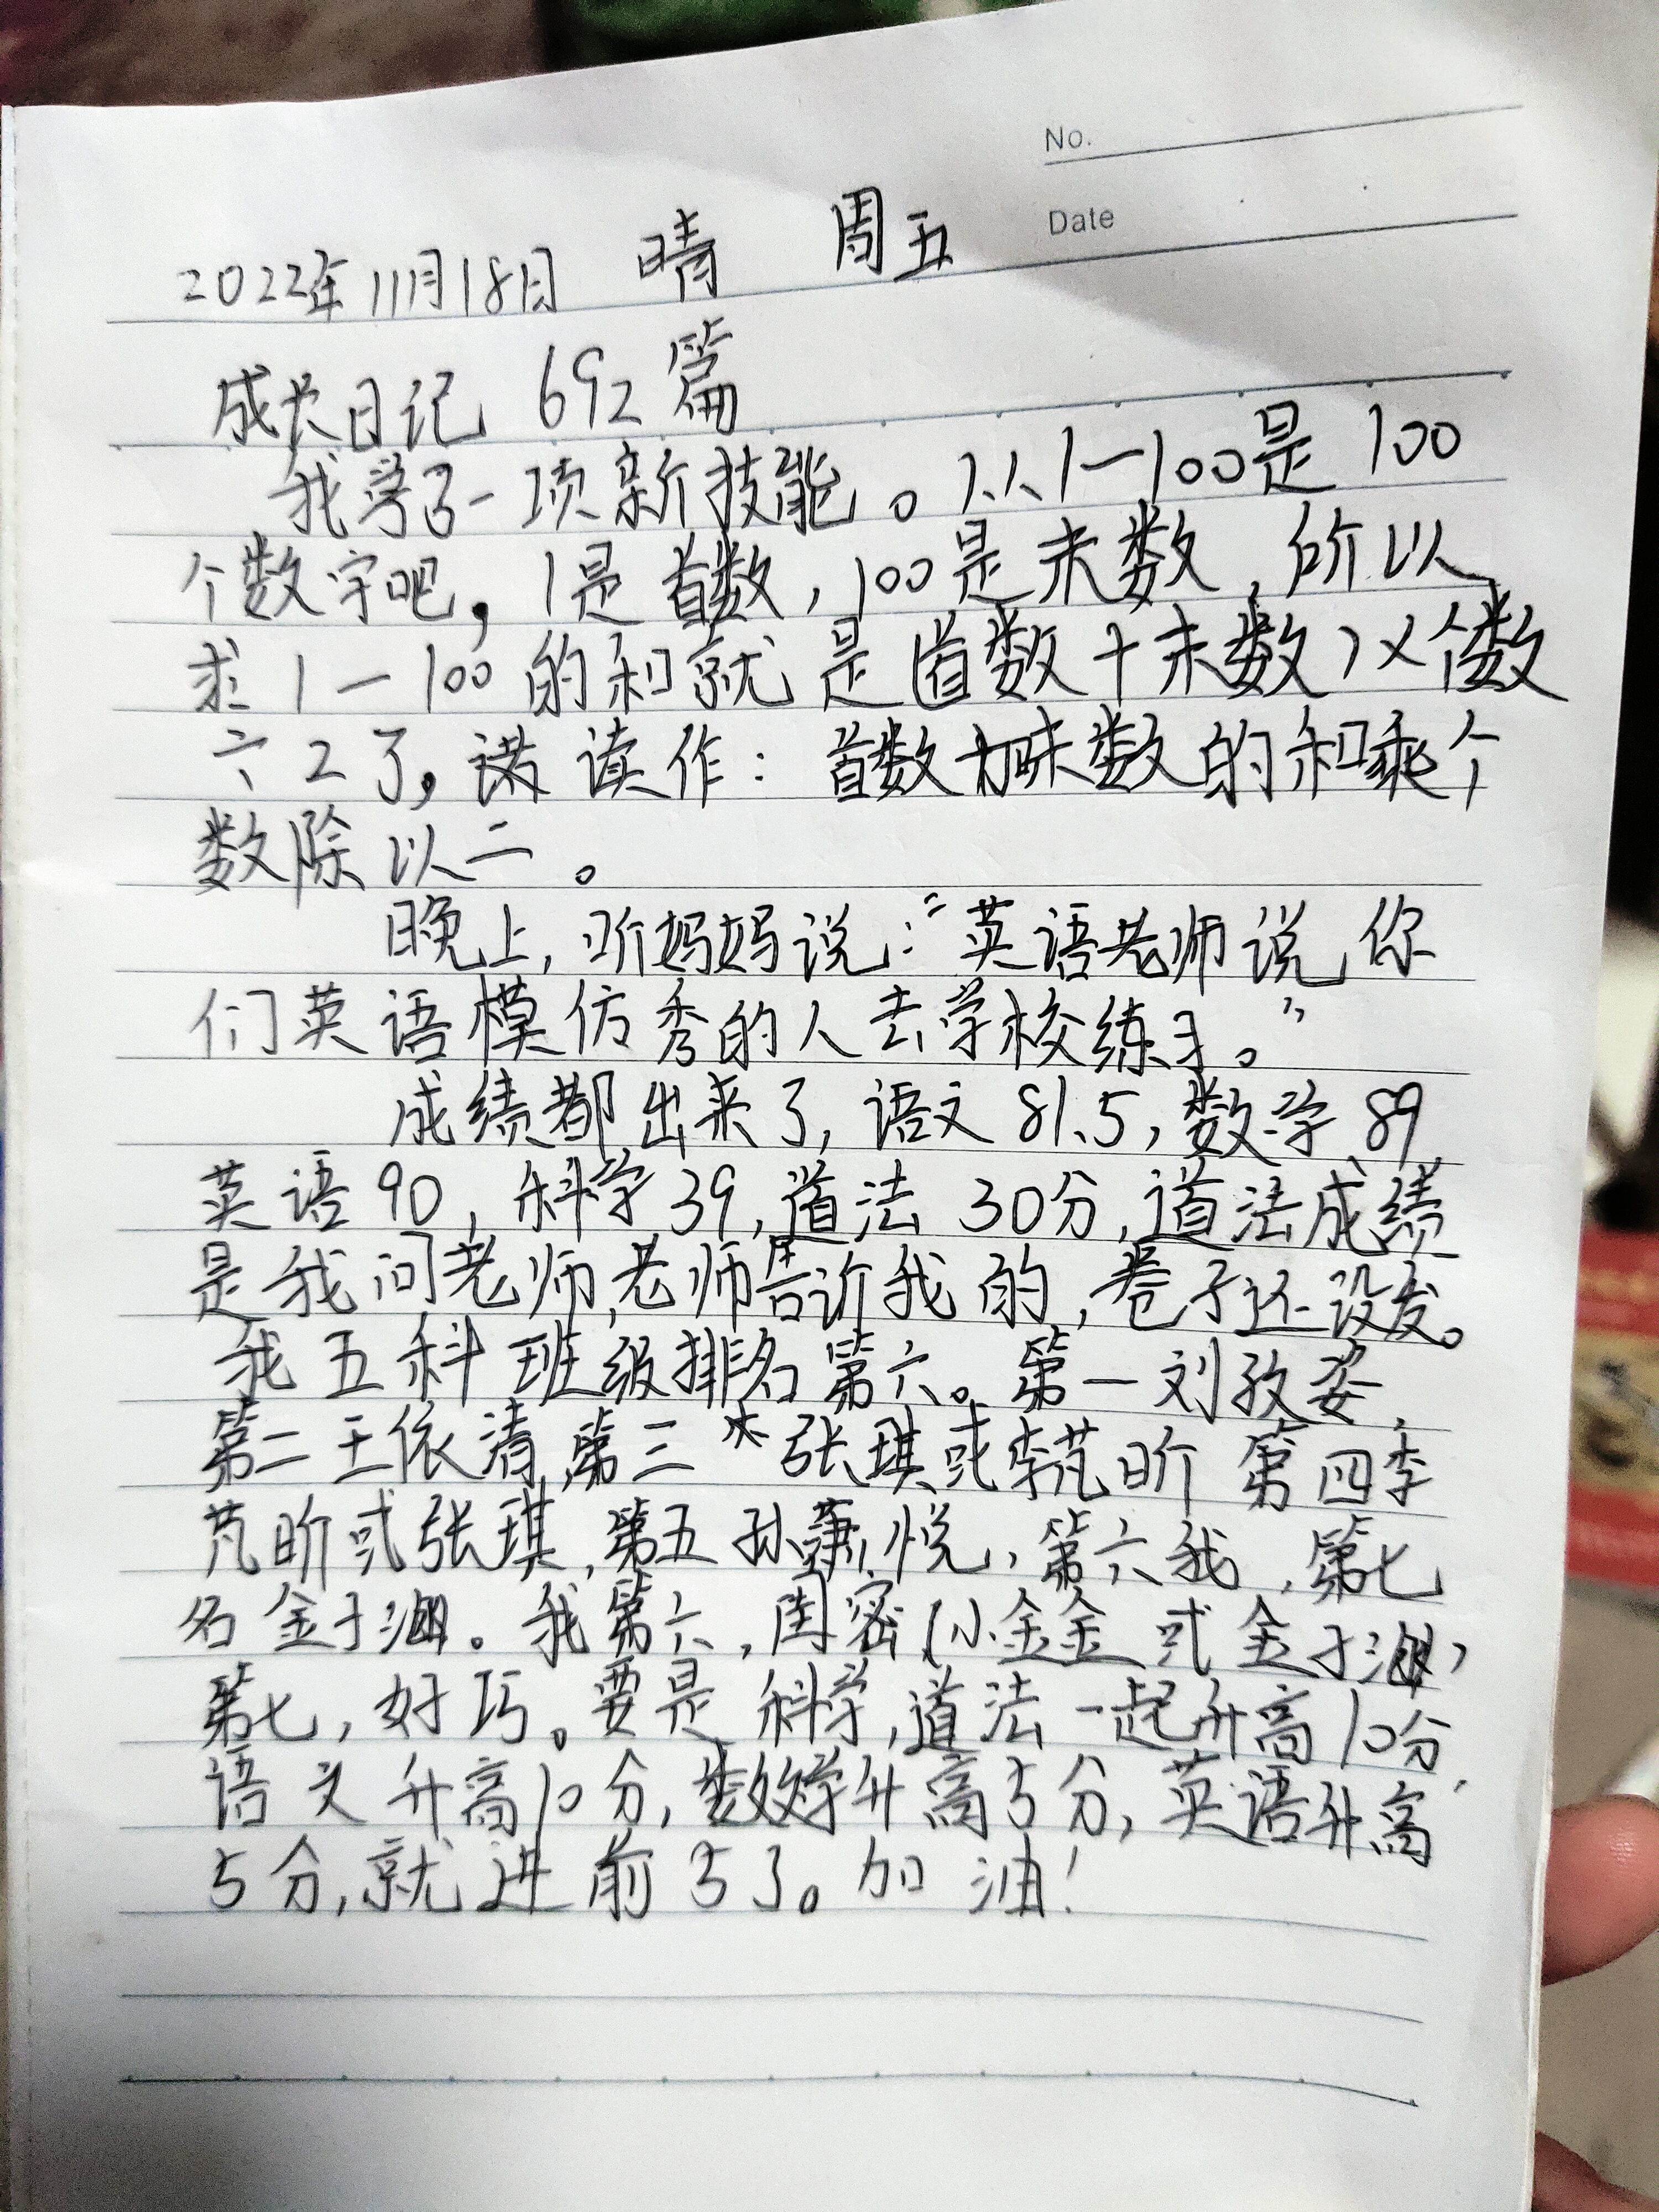 No.
Date
2022年11月18日 晴 周五
成长日记 692篇
我学了一项新技能。从1一100是100
个数字吧,1是首数,100是末数,所以
求1一100的和就是(首数+末数)×个数
÷2了,读作:首数加末数的和乘个
数除以二。
晚上,听妈妈说:"英语老师说,你
们英语模仿秀的人去学校练习。"
成绩都出来了,语文81.5,数学89,
英语90,科学39,道法30分,道法成绩
是我问老师,老师告诉我的,卷子还没发。
我五科班级排名第六。第一刘孜姿,
第二王依清,第三张琪或李芃昕 第四李
芃昕或张琪,第五孙萧悦,第六我,第七
名金于涵。我第六,闺密(小金金或金于涵)
第七,好巧。要是科学,道法一起升高10分,
语文升高10分,数学升高5分,英语升高
5分,就进前3了。加油!